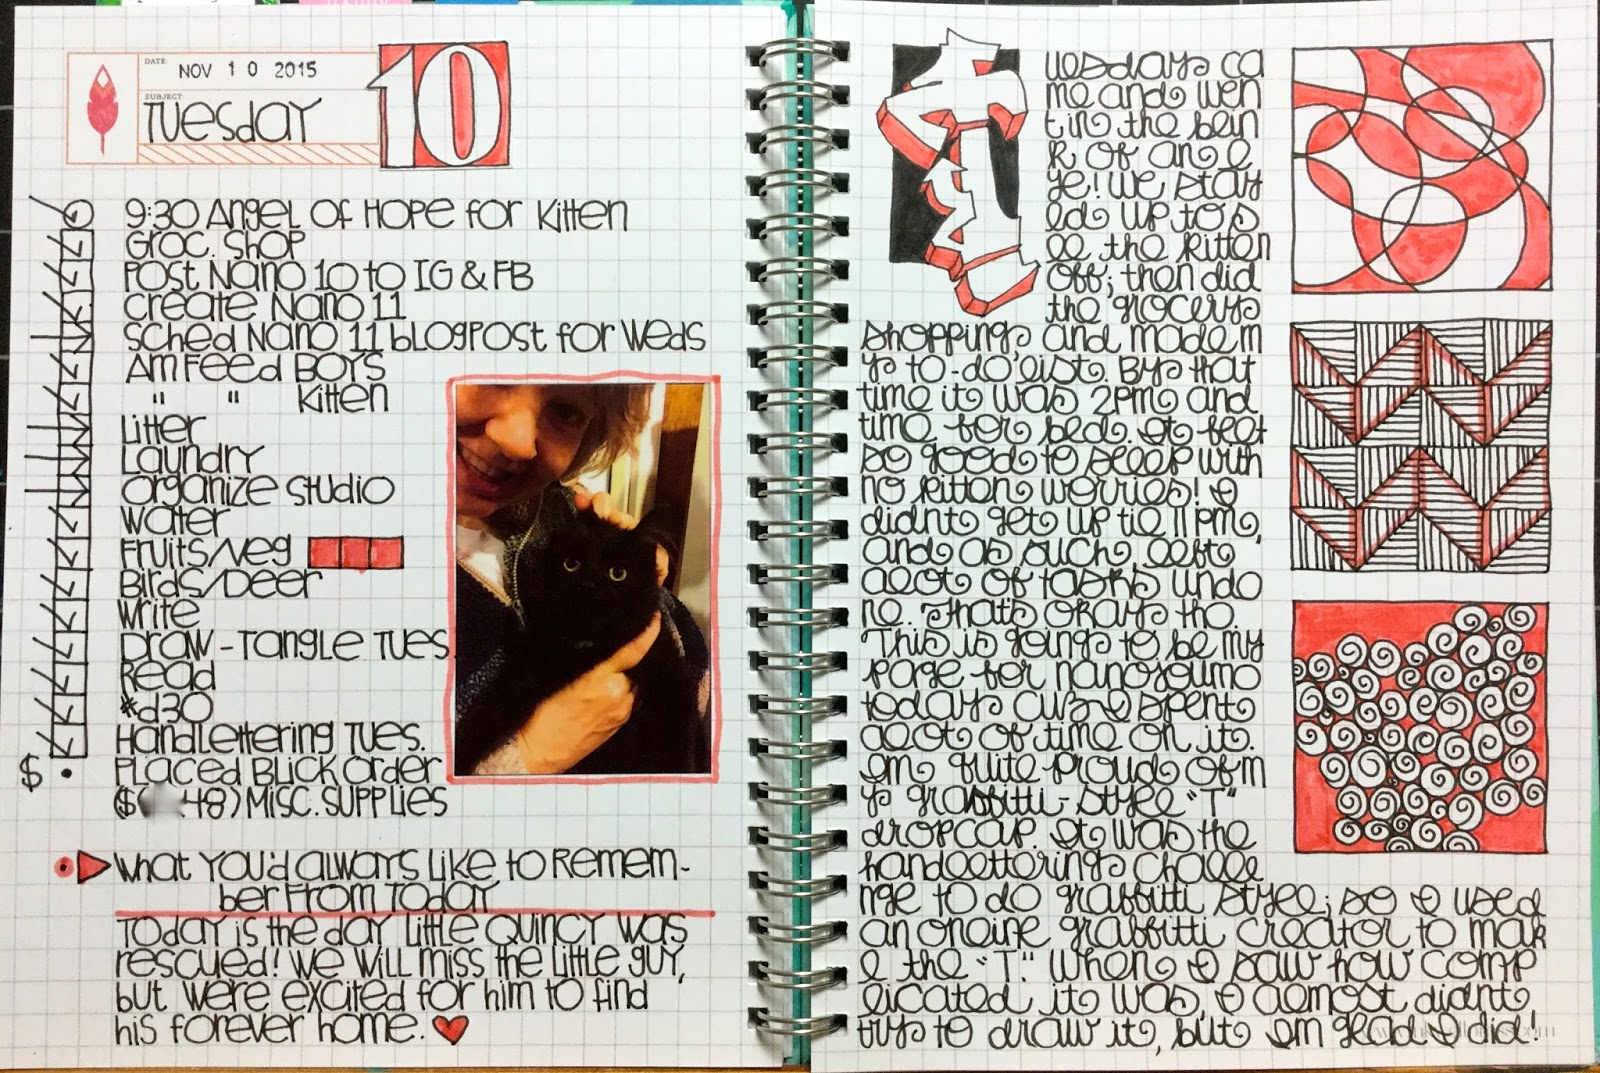 DATE: NOV 10 2015
SUBJECT: Tuesday
10
9:30 Angel of Hope for Kitten
Groc. Shop
Post Nano 10 to IG & FB
Create Nano 11
Sched Nano 11 blogpost for Weds
AM Feed Boys
" " Kitten
Litter
Laundry
Organize Studio
Water
Fruits/Veg
Birds/Deer
Write
Draw - Tangle Tues.
Read
#d30
Handlettering Tues.
$ • Placed Blick Order
($ 48) Misc. Supplies
What You'd Always Like to Remem-
ber From Today
Today is the day Little Quincy was
rescued! We will miss the little guy,
but were excited for him to find
his forever home.
T
uesday ca
me and wen
t in the blin
k of an e
ye! We stay
ed up to s
ee the kitten
off; then did
the grocery
shopping, and made m
y to-do list. By that
time it was 2pm and
time for bed. It felt
so good to sleep with
no kitten worries! I
didnt get up til 11pm,
and as such, left
alot of tasks undo
ne. That's okay tho.
This is going to be my
page for nanojoumo
today cuz I spent
alot of time on it.
Im quite proud of m
y graffitti-style "T"
dropcap. It was the
handlettering challe
nge to do graffitti style; so I used
an online graffitti creator to mak
e the "T." When I saw how comp
licated it was, I almost didnt
try to draw it, but Im glad I did!